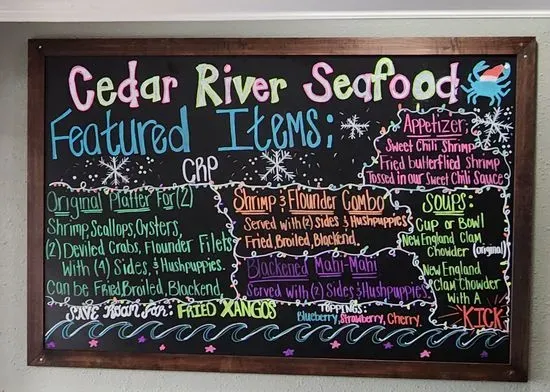 Cedar River Seafood
Featured Items:
CRP
Appetizer:
Sweet Chili Shrimp
Fried butterflied shrimp
Tossed in our Sweet Chili Sauce
Original Platter For (2)
Shrimp, Scallops, Oysters,
(2) Deviled Crabs, Flounder Filets
With (4) Sides, & Hushpuppies.
Can be Fried, Broiled, Blackend.
Shrimp & Flounder Combo
Served with (2) Sides & Hushpuppies
Fried, Broiled, Blackend.
Blackened Mahi-Mahi
Served with (2) Sides & Hushpuppies
Soups:
Cup or Bowl
New England Clam
Chowder (original)
New England
Clam Chowder
With A
KICK
Save Room For: Fried Xangos
Toppings:
Blueberry, Strawberry, Cherry.